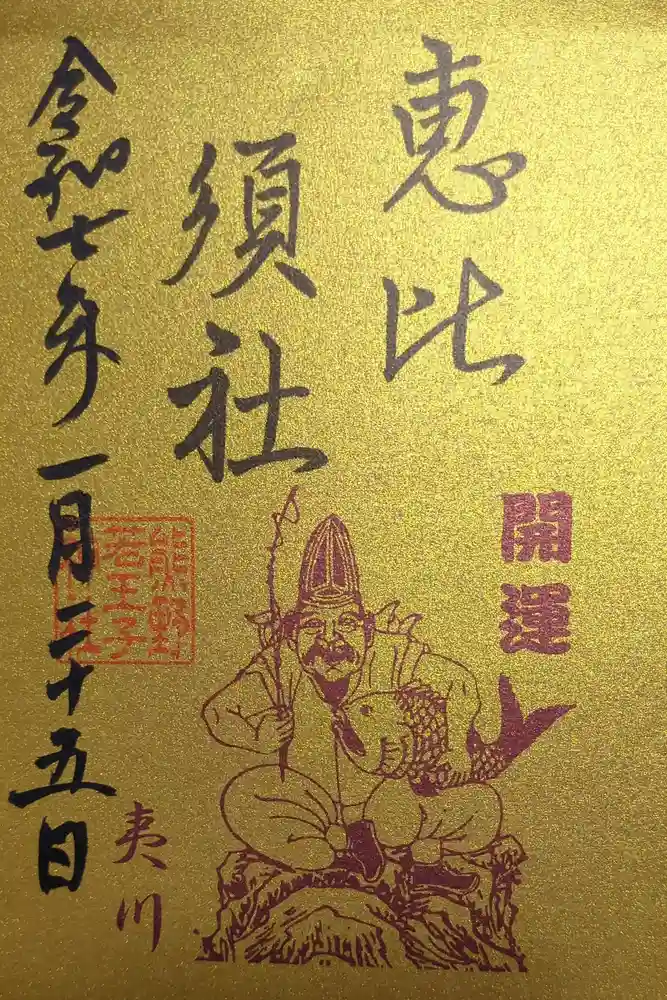 恵比
須社
開運
夷川
熊野
若王子
令和七年一月二十五日